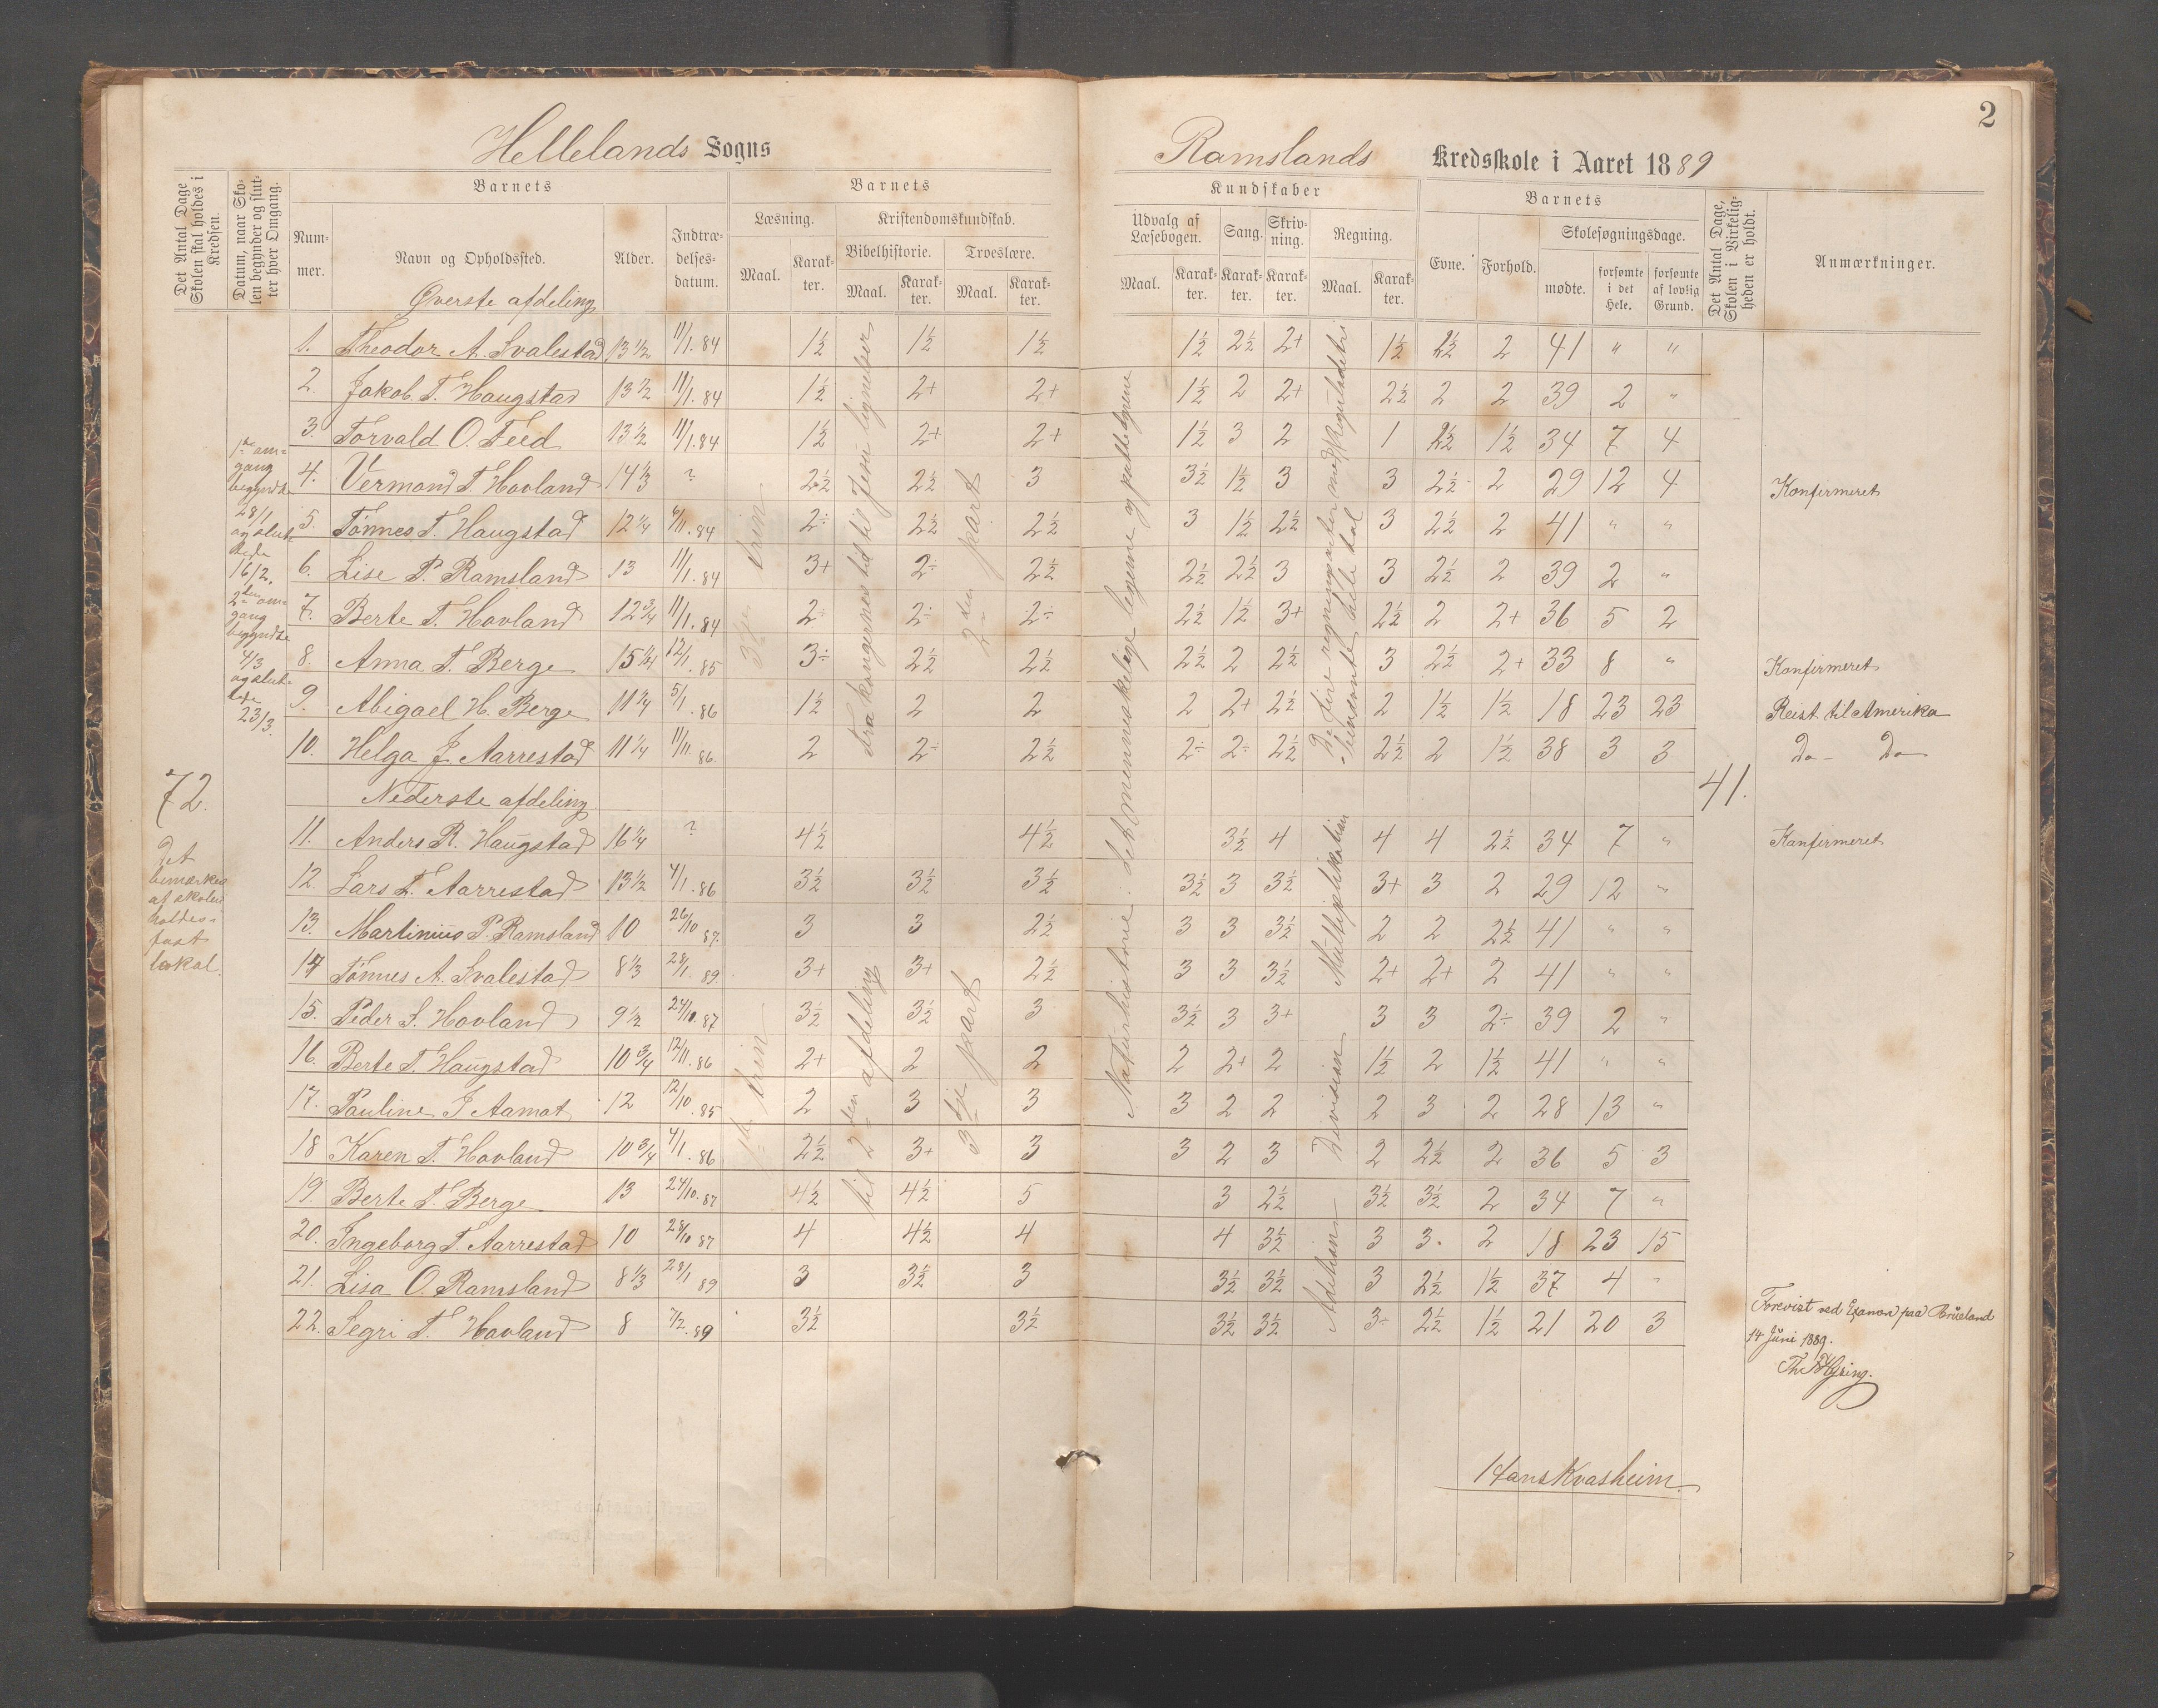 2
Hellelands Sogns
Ramslands Kredsskole i Aaret 1889
Det Antal Dage Skolen skal holdes i Kredsen.
Datum, naar Skolen begynder og slutter hver Omgang.
Barnets
Barnets
Kundskaber
Barnets
Det Antal Dage, Skolen i Virkeligheden er holdt.
Anmærkninger.
Nummer.
Navn og Opholdssted.
Alder.
Indtrædelsesdatum.
Læsning.
Kristendomskundskab.
Bibelhistorie.
Troeslære.
Maal.
Karakter.
Maal.
Karakter.
Maal.
Karakter.
Udvalg af Læsebogen.
Sang.
Skrivning.
Regning.
Evne.
Forhold.
Skolesøgningsdage.
Maal.
Karakter.
Karakter.
Karakter.
Maal.
Karakter.
mødte.
forsømte i det Hele.
forsømte af lovlig Grund.
Øverste afdeling
1. Theodor A. Svalestad 13 1/2 11/1. 84 1½ 1½ 1½ 1½ 2½ 2+ 1½ 2½ 2 41 " "
2. Jakob T. Haugstad 13 1/2 11/1. 84 1½ 2+ 2+ 1½ 2 2+ 2½ 2 2 39 2 "
3. Torvald O. Teed 13 1/2 11/1. 84 1½ 2+ 2+ 1½ 3 2 1 2½ 1½ 34 7 4
4. Vermond T. Hovland 14 1/3 ? 2½ 2½ 3 3½ 1½ 3 3 2½ 2 29 12 4 Konfirmeret
5. Tønnes T. Haugstad 12 1/4 9/11. 84 2÷ 2½ 2½ 3 1½ 2½ 3 2½ 2 41 " "
6. Lise P. Ramsland 13 11/1. 84 3+ 2÷ 2½ 2½ 2½ 3 3 2½ 2 39 2 "
7. Berte T. Hovland 12 3/4 11/1. 84 2÷ 2÷ 2÷ 2½ 1½ 3+ 2½ 2 2+ 36 5 2
8. Anna T. Berge 15 1/4 12/1. 85 3÷ 2½ 2½ 2½ 2 2½ 3 2½ 2+ 33 8 " Konfirmeret
9. Abigael H. Berge 11 1/4 5/1. 86 1½ 2 2 2 2+ 2½ 2 1½ 1½ 18 23 23 Reist til Amerika
10. Helga J. Aarrestad 11 1/4 11/11. 86. 2 2÷ 2½ 2÷ 2÷ 2½ 2½ 2 1½ 38 3 3 Do - Do
Nederste afdeling
11. Anders R. Haugstad 16 1/4 ? 4½ 4½ 3½ 4 4 4 2½ 34 7 " Konfirmeret
12. Lars L. Aarrestad 13 1/2 4/1. 86 3½ 3½ 3½ 3½ 3 3½ 3+ 3 2 29 12 "
13. Martinius P. Ramsland 10 26/10 87. 3 3 2½ 3 3 3½ 2 2 2½ 41 " "
14 Tønnes A. Svalestad 8 1/3 28/1. 89 3+ 3+ 2½ 3 3 3½ 2+ 2+ 2 41 " "
15. Peder S. Hovland 9 1/2 24/10. 87 3½ 3½ 3 3½ 3 3+ 3 3 2÷ 39 2 "
16. Berte T. Haugstad 10 3/4 12/11. 86 2+ 2 2 2 2+ 2 1½ 2 1½ 41 " "
17. Pauline J Aamot 12 12/10. 85 2 3 3 3 2 2 2 3 2 28 13 "
18 Karen T. Hovland 10 3/4 4/1. 86 2½ 3+ 3 3 2 3 2 2½ 2 36 5 3
19. Berte T. Berge 13 24/10. 87 4½ 4½ 5 3 2½ 3½ 3½ 2 34 7 "
20. Ingeborg T. Aarrestad 10 28/10 87 4 4½ 4 4 3½ 3 3. 2 18 23 15
21. Lisa O. Ramsland 8 1/3 28/1 89 3 3½ 3 3½ 3½ 3 2½ 1½ 37 4 "
22. Segri T. Hovland 8 7/2. 89 3½ 3½ 3½ 3½ 3÷ 2½ 1½ 21 20 3
1ste om=
gang
begyndte
28/1
og slut-
tede
16/2.
2den om=
gang
begyndte
4/3
og slut=
tede
23/3.
72.
Det
bemærkes
at skolen
holdes i
fast
lokal.
3dje trin
1ste trin
Fra kongernes tid til Jesu lignelser
til 2den afdeling
2den part
3dje part
Naturhistorie: det menneskelige legeme og pattedyrene
De fire regningsarter med
benævnte hele tal
Multiplikation
Division
Adition
41.
Forevist ved Examen paa
14 Juni 1889.
Hans Kvasheim.